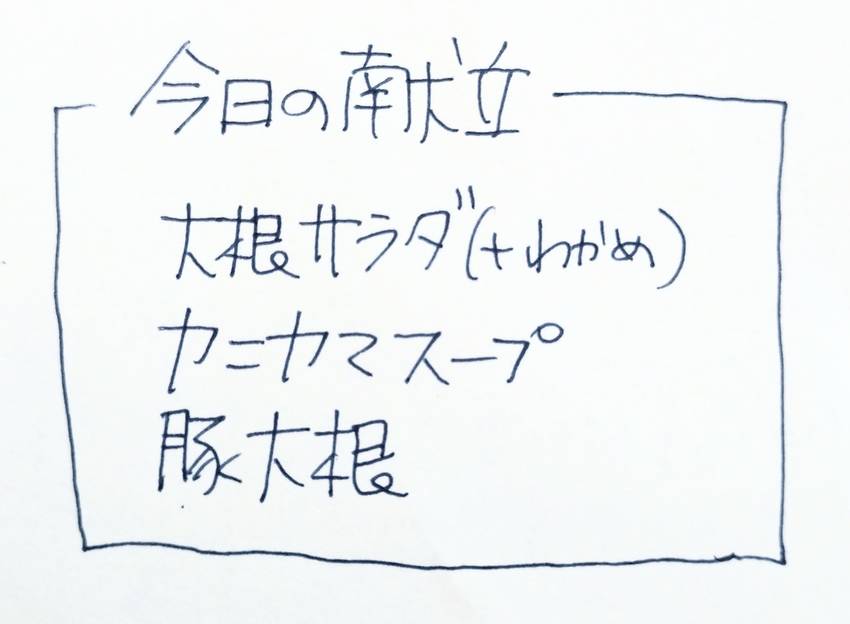 今日の献立
大根サラダ(+わかめ)
カニカマスープ
豚大根